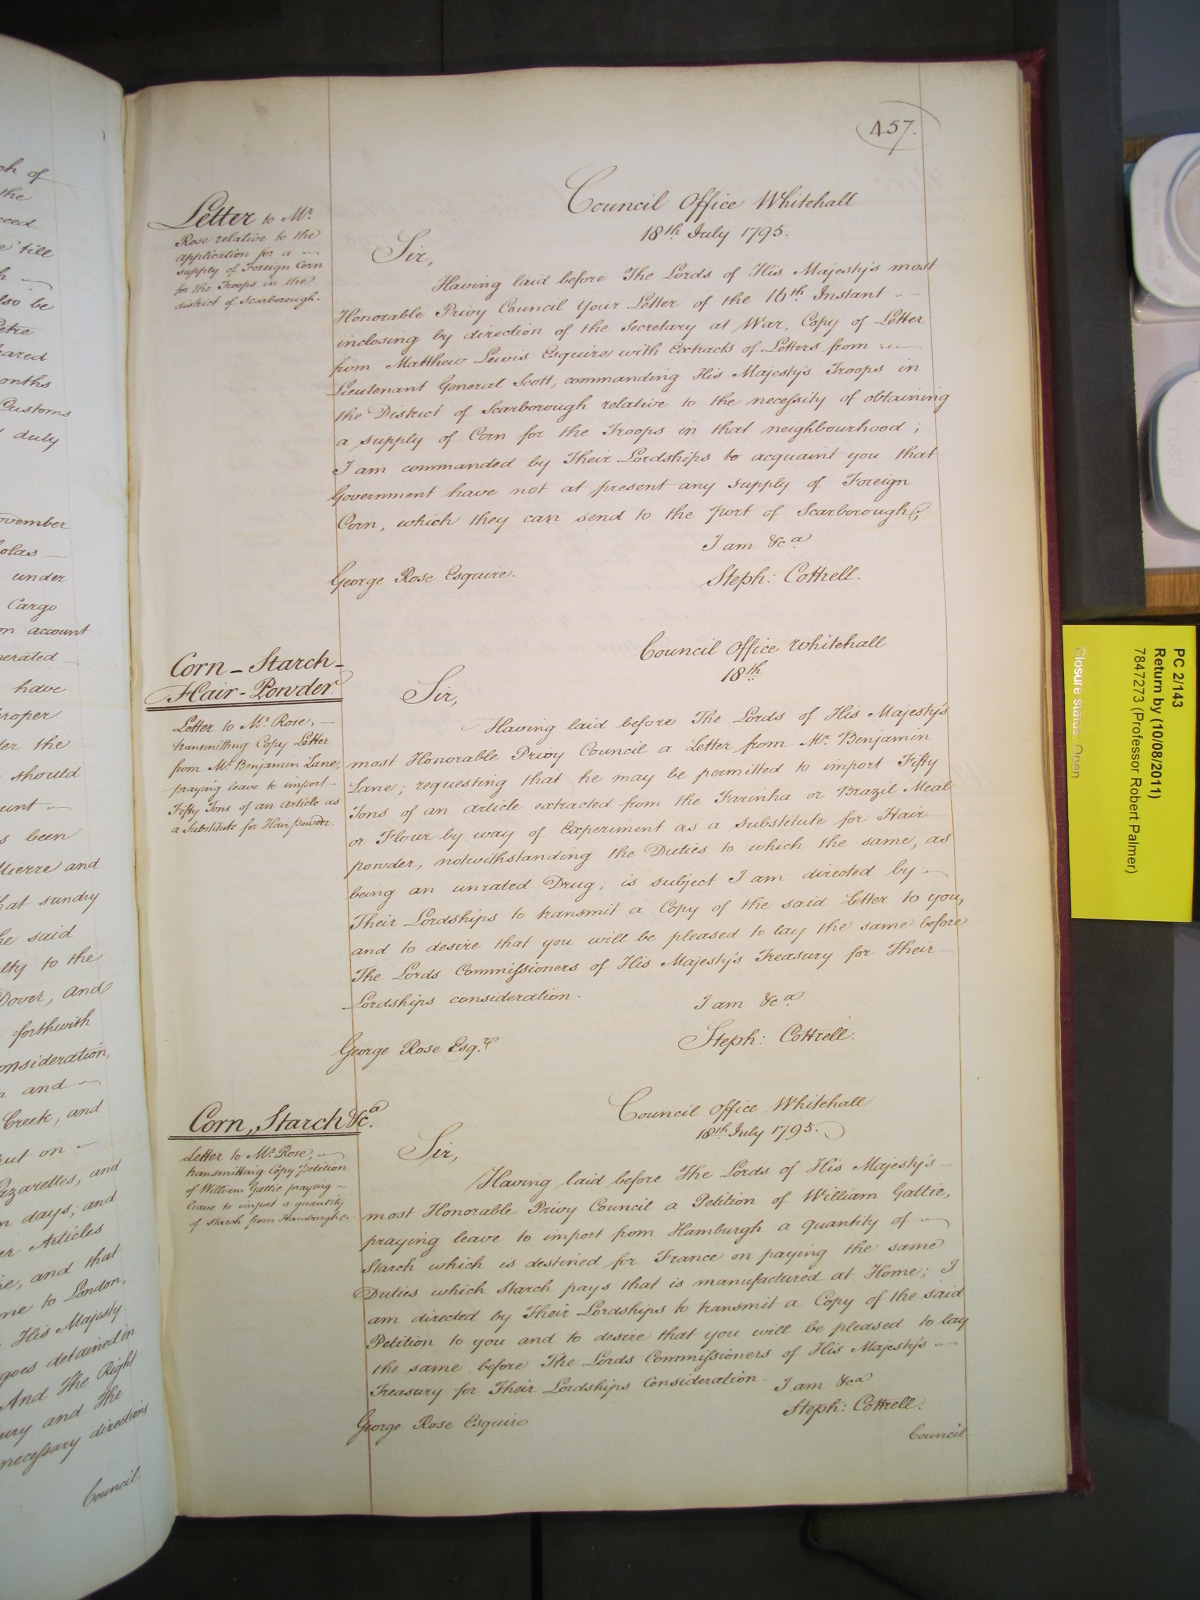 457.
Council Office Whitehall
18th July 1795.
Letter to Mr.
Rose relative to the
application for a
supply of Foreign Corn
for the Troops in the
district of Scarborough.
Sir,
Having laid before The Lords of His Majesty's most
Honorable Privy Council Your Letter of the 16th Instant
inclosing by direction of the Secretary at War, Copy of Letter
from Matthew Lewis Esquire with Extracts of Letters from
Lieutenant General Scott, commanding His Majesty's Troops in
the District of Scarborough relative to the necessity of obtaining
a supply of Corn for the Troops in that neighbourhood;
I am commanded by Their Lordships to acquaint you that
Government have not at present any supply of Foreign
Corn, which they can send to the port of Scarborough
I am &ca
George Rose Esquire. Steph: Cottrell.
Council Office Whitehall
18th
Corn - Starch -
Hair - Powder.
Letter to Mr. Rose,
transmitting Copy Letter
from Mr. Benjamin Lane,
praying leave to import
Fifty Tons of an Article as
a Substitute for Hair powder.
Sir,
Having laid before The Lords of His Majesty's
most Honorable Privy Council a Letter from Mr. Benjamin
Lane; requesting that he may be permitted to import Fifty
Tons of an Article extracted from the Farinha or Brazil Meal
or Flour by way of Experiment as a substitute for Hair
powder, notwithstanding the Duties to which the same, as
being an unrated Drug, is subject I am directed by
Their Lordships to transmit a Copy of the said Letter to you,
and to desire that you will be pleased to lay the same before
The Lords Commissioners of His Majesty's Treasury for Their
Lordships consideration.
I am &ca
Steph: Cottrell.
George Rose Esq.r
Council Office Whitehall
18th July 1795.
Corn, Starch &c.a
Letter to Mr. Rose,
transmitting Copy petition
of William Gattie praying
leave to import a quantity
of Starch from Hamburgh.
Sir,
Having laid before The Lords of His Majesty's
most Honorable Privy Council a Petition of William Gattie,
praying leave to import from Hamburgh a quantity of
Starch which is destined for France on paying the same
Duties which Starch pays that is manufactured at Home; I
am directed by Their Lordships to transmit a Copy of the said
Petition to you and to desire that you will be pleased to lay
the same before The Lords Commissioners of His Majesty's
Treasury for Their Lordships Consideration.
I am &ca
Steph: Cottrell.
George Rose Esquire
Council
PC 2/143
Return by (10/08/2011)
7847273 (Professor Robert Palmer)
Closure status: Open
the
till
also be
months
Customs
duly
November
under
Cargo
on account
have
proper
the
should
been
and
that sundry
the said
to the
Dover, and
forthwith
consideration,
and
Creek, and
out on
Lazarettes, and
days; and
Articles
and that
to London,
His Majesty
detained in
And The Right
and The
necessary directions
Council